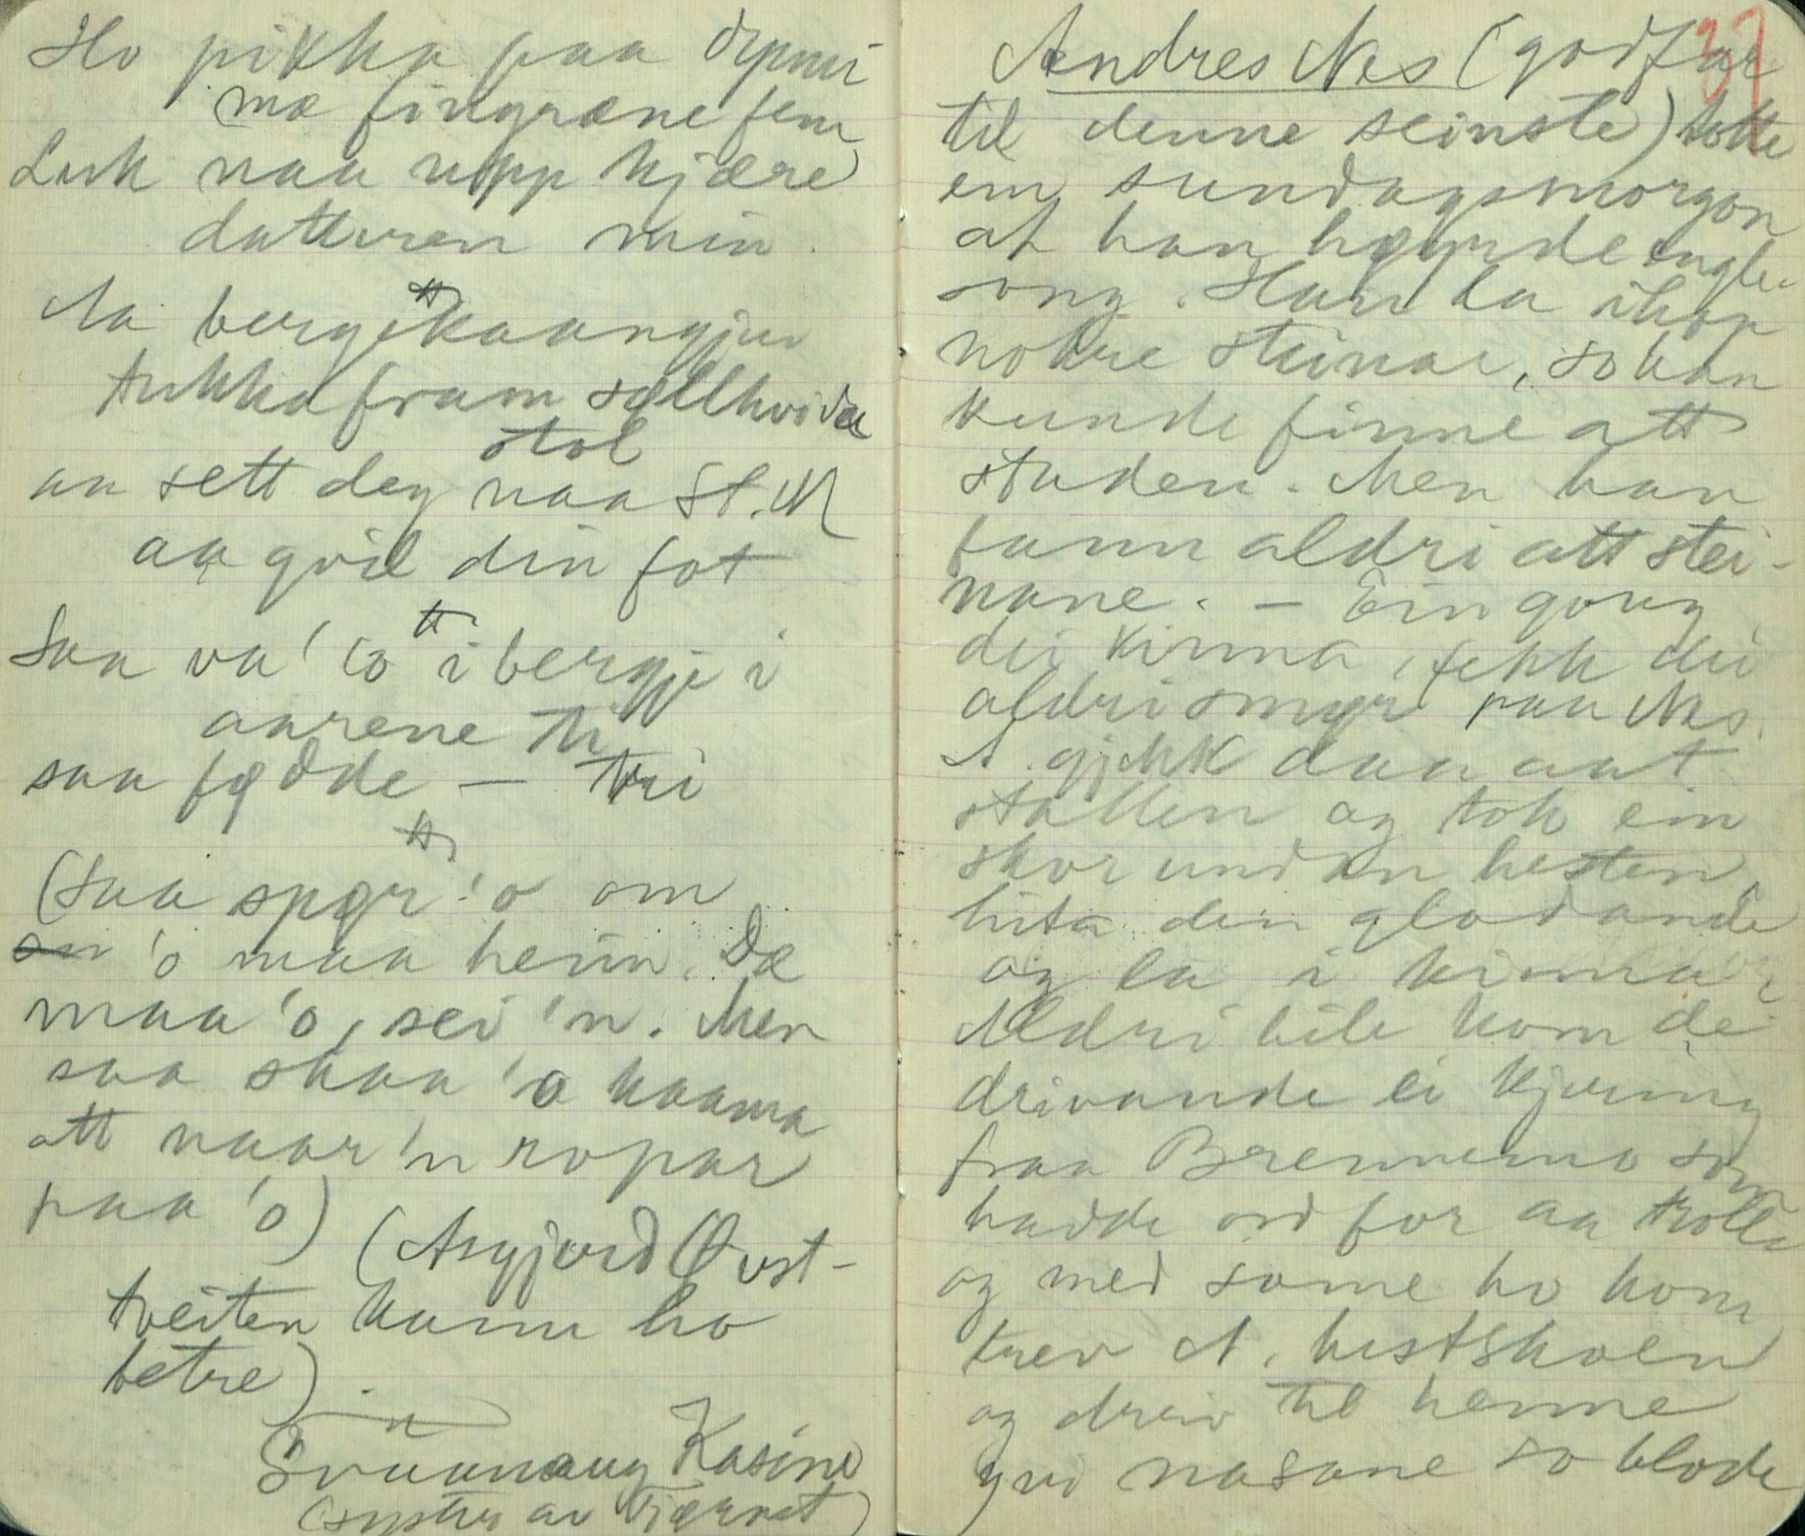 Ho pikka paa dynni
mæ fingrane fem
Luk naa upp kjære
datteren min.
Aa bergjekaangjen
trukka fram sylkvida
stol
aa sett deg naa St. M
aa qvil din fot
Saa va' 'o i bergje i
aarene tri
saa fødde — tri
(Saa spør 'o om
'o maa heim. Dæ
maa 'o, sei 'n. Men
saa skaa 'o kaama
att naar 'n ropar
paa 'o) (Asgjerd Øvst-
tveiten kann ho
betre).
Svaanaug Kasine
(syster av Tjærnet)
37
Andres Nes (godfar
til denne seinste) totte
ein sundagsmorgon
at han høyrde engle-
song. Han la ihop
nokre steinar, so han
kunde finne att
staden. Men han
fann aldri att stei-
nane. — Ein gong
dei kinna, fekk dei
aldri smør paa Nes.
A. gjekk daa aat
stallen og tok ein
skor undan hesten,
hita den glodande
og la i kinna.
Aldri bile kom de
drivande ei kjering
fraa Brennemo som
hadde ord for aa trolle
og med same ho kom
treiv A. hestskoen
og dreiv til henne
yvi nasane so blode